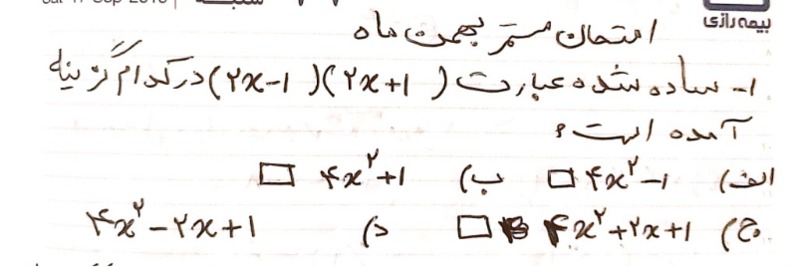 بیمه رازی
امتحان مستمر بهمن ماه
۱- ساده شده عبارت (۲x-۱)(۲x+۱) در کدام گزینه
آمده است؟
الف) ۴x²-۱ □ ب) ۴x²+۱ □
ج) ۴x²+۲x+۱ □ د) ۴x²-۲x+۱